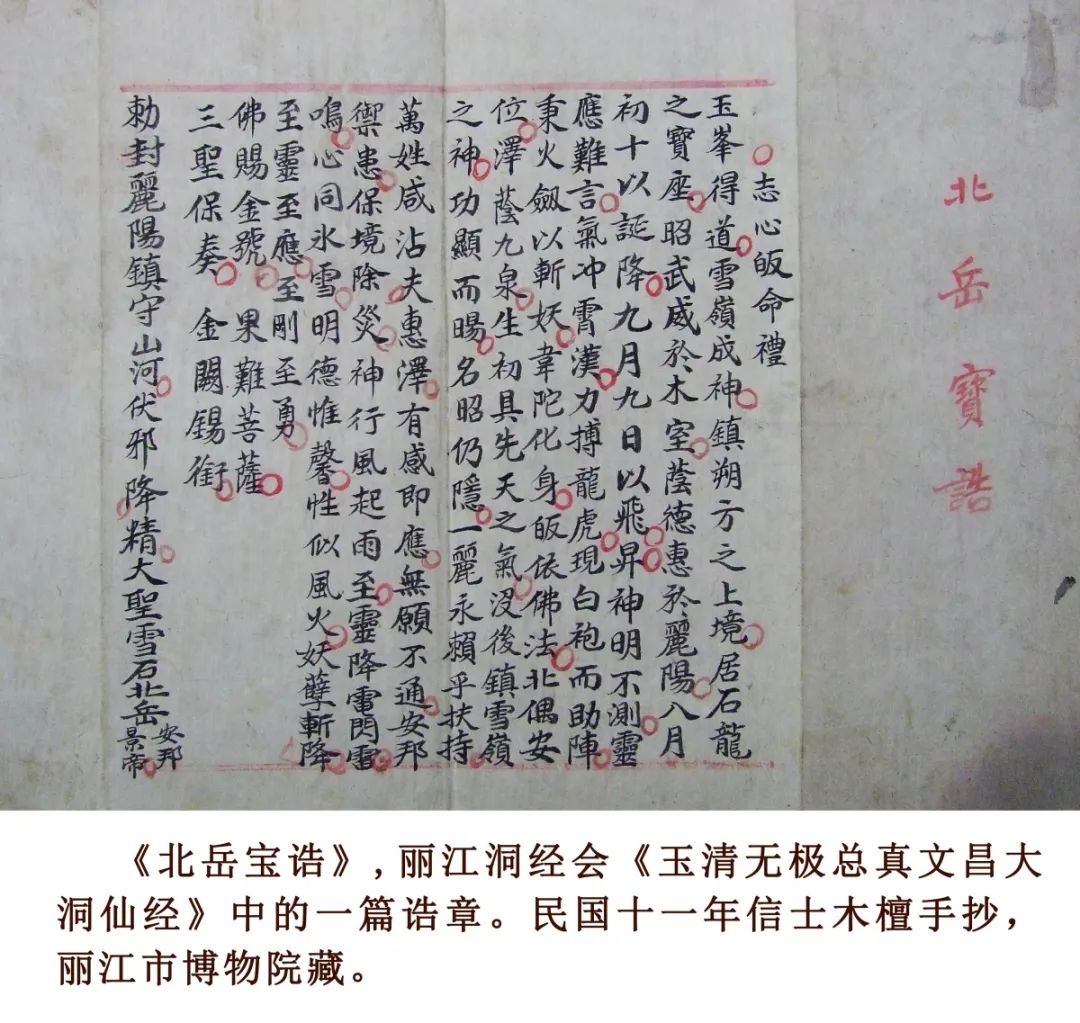 北岳寶誥
志心皈命禮
玉峯得道雪嶺成神鎮朔方之上境居石龍
之寶座昭武威於木室蔭德惠於麗陽八月
初十以誕降九月九日以飛昇神明不測靈
應難言氣冲霄漢力搏龍虎現白袍而助陣
秉火劔以斬妖韋陀化身皈依佛法北偶安
位澤蔭九泉生初具先天之氣沒後鎮雪嶺
之神功顯而暘名昭仍隱一麗永賴乎扶持
萬姓咸沾夫惠澤有感即應無願不通安邦
禦患保境除災神行風起雨至靈降電閃雷
鳴心同氷雪明德惟馨性似風火妖孽斬降
至靈至應至剛至勇
佛賜金號果難菩薩
三聖保奏金闕錫銜
勅封麗陽鎮守山河伏邪降精大聖雪石北岳安邦景帝
《北岳宝诰》,丽江洞经会《玉清无极总真文昌大
洞仙经》中的一篇诰章。民国十一年信士木檀手抄,
丽江市博物院藏。